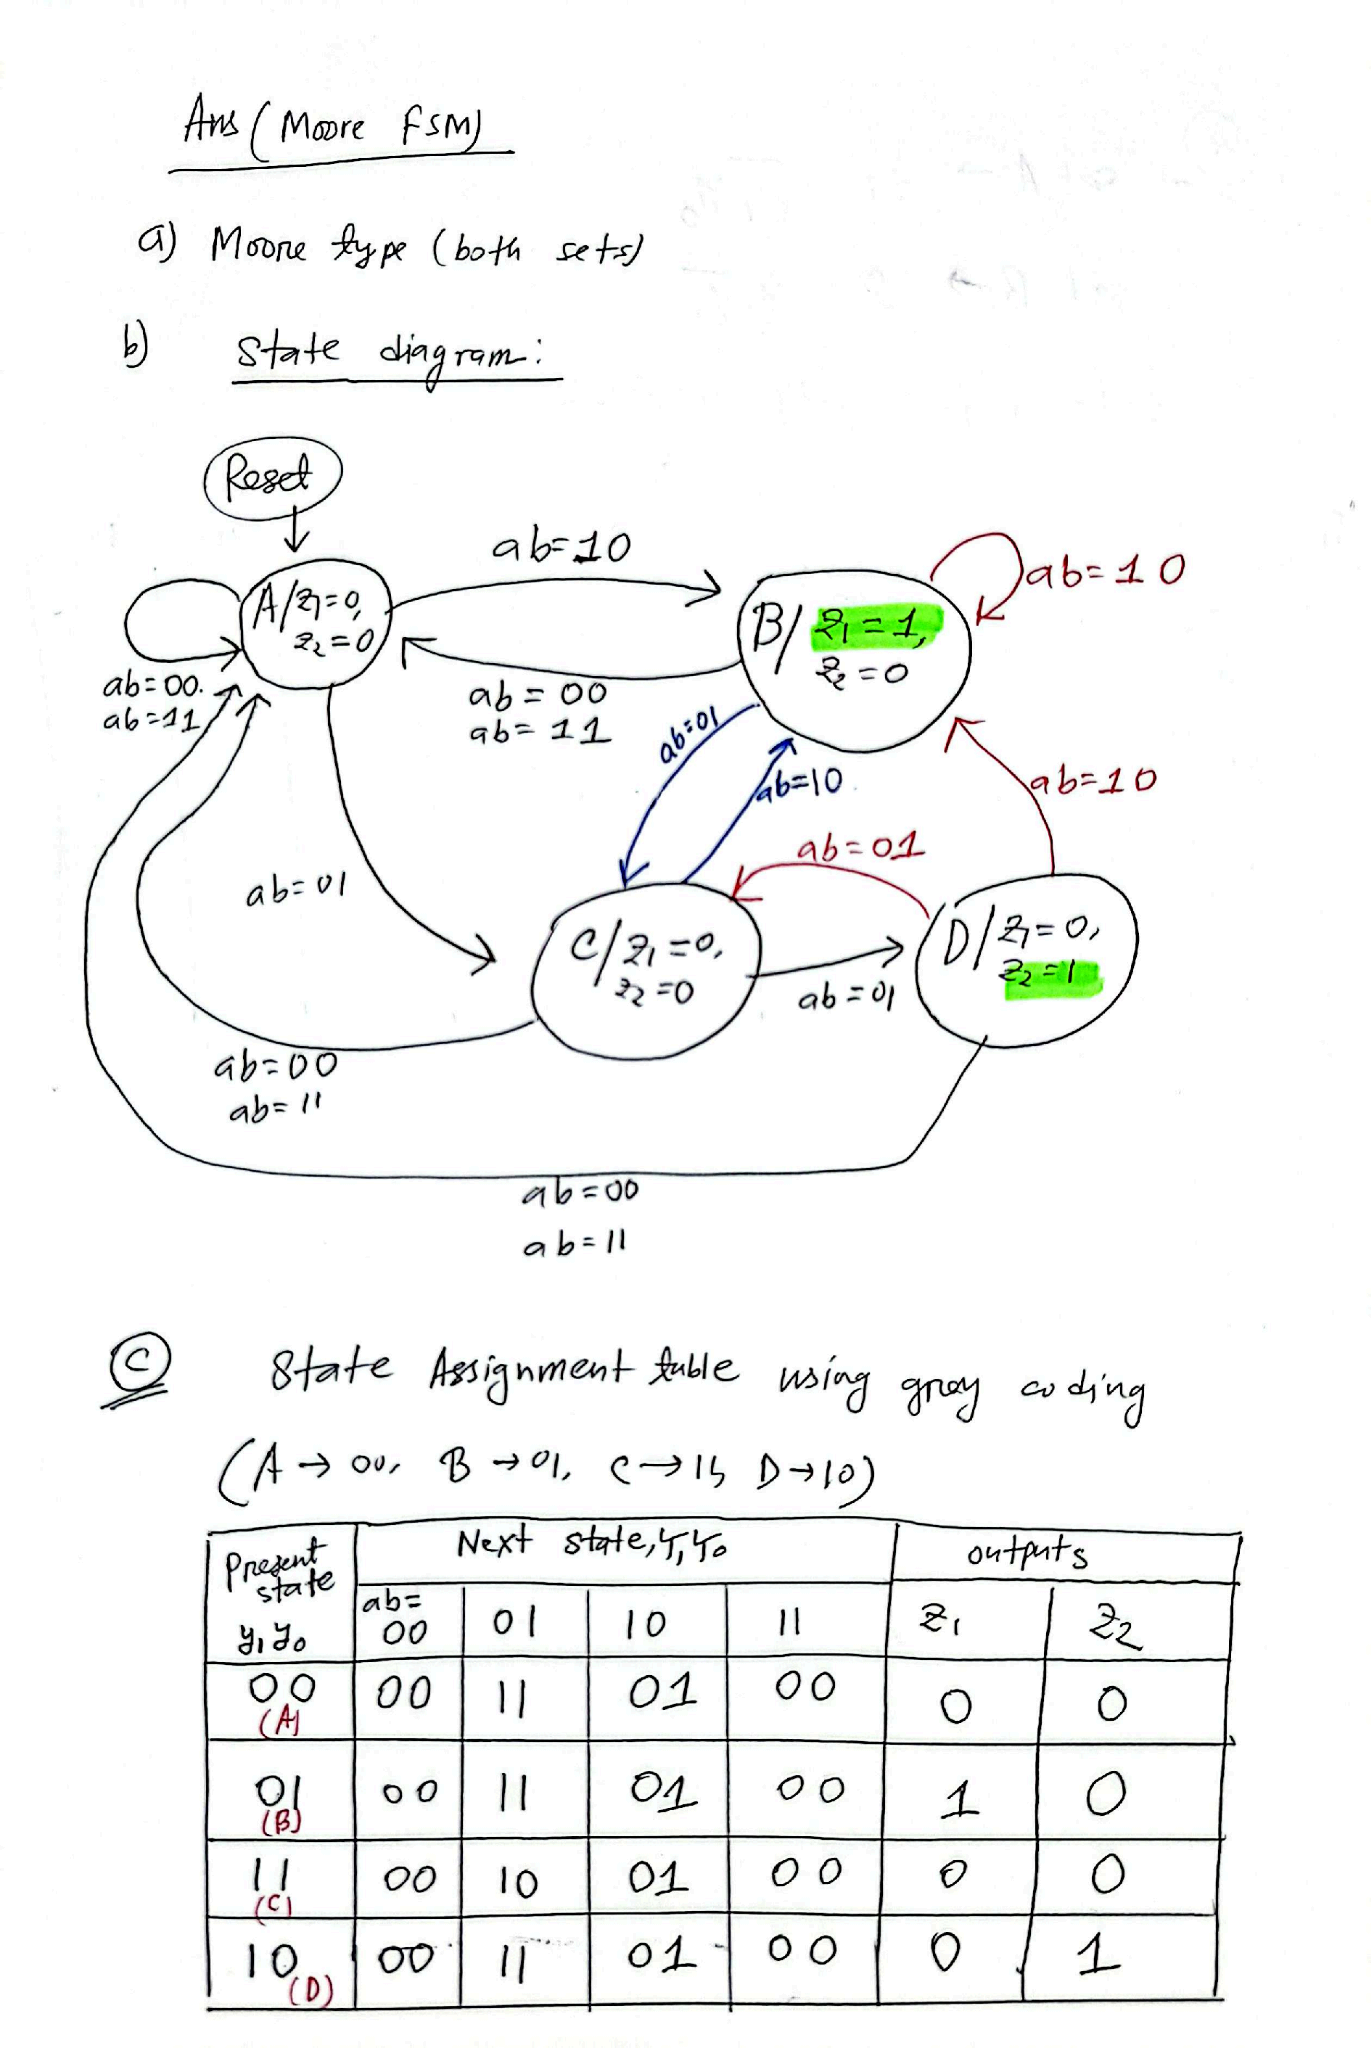 Ans (Moore FSM)
a) Moore type (both sets)
b) State diagram:
Reset
ab=10
ab=10
A/z1=0,
z2=0
B/ z1=1,
z2=0
ab=00.
ab=11
ab=00
ab=11
ab=01
ab=10
ab=10
ab=01
ab=01
C/z1=0,
z2=0
D/z1=0,
z2=1
ab=01
ab=00
ab=11
ab=00
ab=11
C State Assignment table using gray coding
(A→00, B→01, C→11, D→10)
Present state y1y0 | Next state, Y1Y0 | outputs
ab= 00 | 01 | 10 | 11 | z1 | z2
00 (A) | 00 | 11 | 01 | 00 | 0 | 0
01 (B) | 00 | 11 | 01 | 00 | 1 | 0
11 (C) | 00 | 10 | 01 | 00 | 0 | 0
10 (D) | 00 | 11 | 01 | 00 | 0 | 1